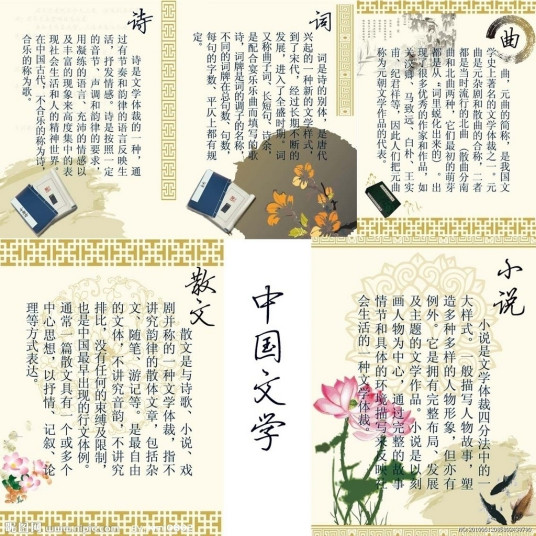 诗
诗是文学体裁的一种，通
过有节奏和韵律的语言反映生
活，抒发情感。诗是按照一定
的音节、声调和韵律的要求，
用凝练的语言、充沛的情感以
及丰富的现象来高度集中的表
现社会生活和人的精神世界
在中国古代，不合乐的称为诗，
合乐的称为歌
词
词是诗的别体，是唐代
兴起的一种新的文学样式，
到了宋代，经过长期不断的
发展，进入了全盛时期。词
又称曲子词、长短句、诗余，
是配合宴乐乐曲而填写的歌
诗，词牌是词的调子的名称，
不同的词牌在总句数、句数，
每句的字数、平仄上都有规
定。
曲
曲，元曲的简称，是我国文
学史上著名的文学体裁之一。元
曲是元杂剧和散曲的合称，二者
都是当时流行的北曲（散曲分南
曲和北曲两种，它们最初的萌芽
都是从“词里蜕化出来的）。出
现了很多优秀的作家和作品，如
关汉卿、马致远、白朴、王实
甫、纪君祥等，因此人们把元曲
称为元朝文学作品的代表。
散文
散文是与诗歌、小说、戏
剧并称的一种文学体裁，指不
讲究韵律的散体文章，包括杂
文、随笔、游记等。是最自由
的文体，不讲究音韵，不讲究
排比，没有任何的束缚及限制，
也是中国最早出现的行文体例。
通常一篇散文具有一个或多个
中心思想，以抒情、记叙、论
理等方式表达。
中国文学
小说
小说是文学体裁四分法中的一
大样式。一般描写人物故事，塑
造多种多样的人物形象，但亦有
例外。它是拥有完整布局、发展
及主题的文学作品。小说是以刻
画人物为中心，通过完整的故事
情节和具体的环境描写来反映社
会生活的一种文学体裁。